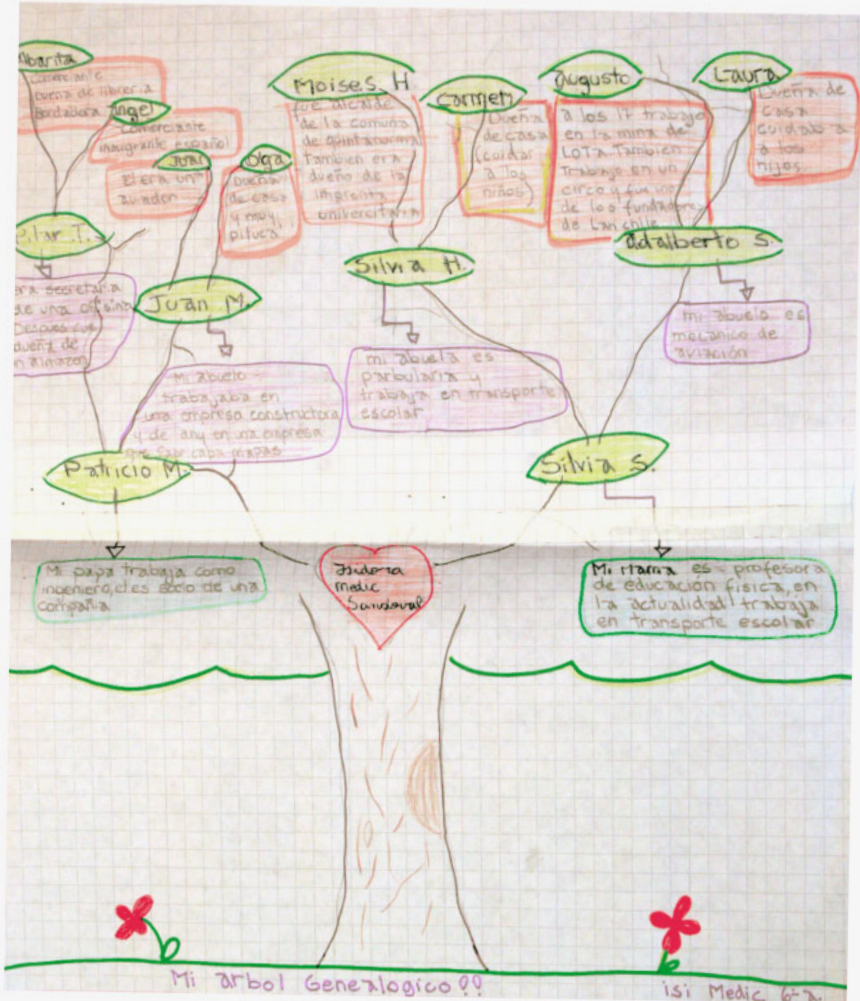 Comerciante
dueña de libreria
bordadora
Angel
Comerciante
inmigrante español
Juan
El era un
aviador
Olga
Dueña
de casa
y muy
pituca
Moises. H
fue alcalde
de la comuna
de quintanormal
tambien era
dueño de la
imprenta
universitaria
Carmen
Dueña
de casa
(cuidar
a los
niños)
Augusto
a los 17 trabajo
en la mina de
LOTA Tambien
Trabajo en un
circo y fue uno
de los fundadores
de Lan chile
Laura
Dueña de
casa
cuidaba a
a los
hijos
Pilar T.
era secretaria
de una ofisina
Despues fue
dueña de
un almazen
Juan M.
Mi abuelo
trabajaba en
una empresa constructora
y de en una empresa
que fabricaba mapas
Silvia H.
mi abuela es
parbularia y
trabaja en transporte
escolar
adalberto S.
mi abuelo es
mecanico de
aviación
Patricio M.
Mi papa trabaja como
ingeniero, el es socio de una
compañia
Silvia S.
Mi Mama es profesora
de educación fisica, en
la actualidad trabaja
en transporte escolar
Isidora
Medic
Sandoval
Mi arbol Genealogico!!
isi Medic 6-a